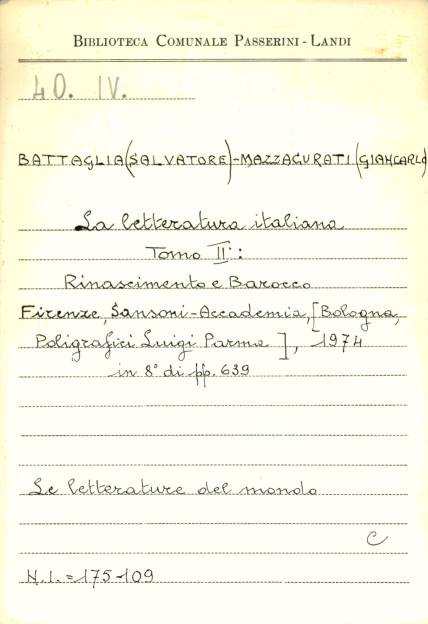 BIBLIOTECA COMUNALE PASSERINI - LANDI
40. IV.
BATTAGLIA (SALVATORE) - MAZZACURATI (GIANCARLO)
La letteratura italiana
Tomo II°:
Rinascimento e Barocco
Firenze, Sansoni-Accademia, [Bologna,
Poligrafici Luigi Parma], 1974
in 8° di pp. 639
Le letterature del mondo
C
N.I. = 175-109